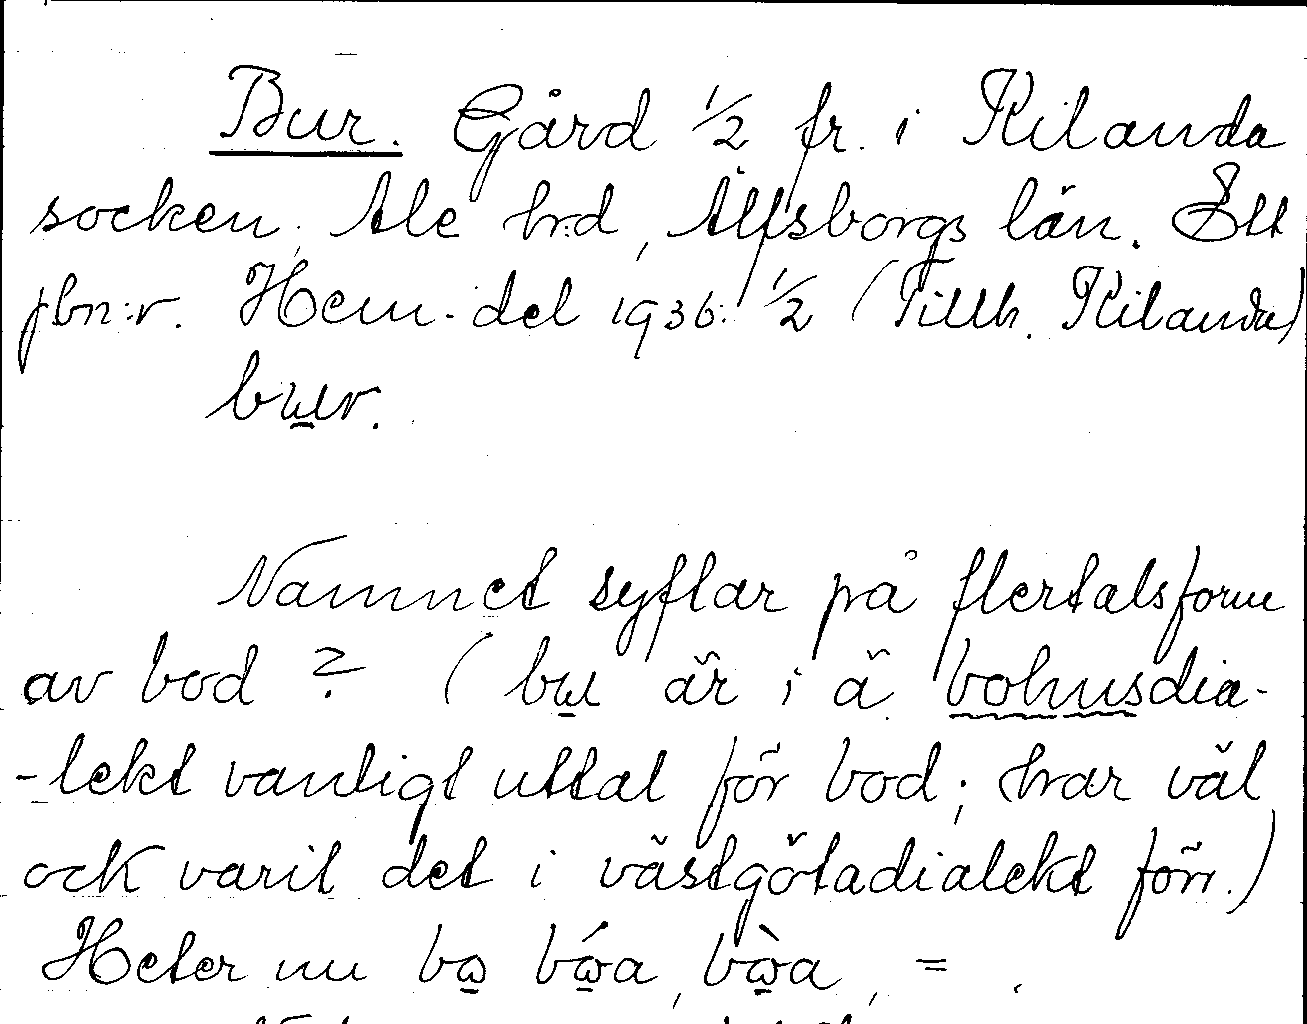 Bur. Gård 1/2 fr. i Kilanda
socken, Ale hrd, Älfsborgs län. Ett
jbn:r. Hem. del 1936: 1/2 (Tillh. Kilanda)
bɯr.
Namnet syftar på flertalsform
av bod? (bɯ är i ä bohusdia-
-lekt vanligt uttal för bod; har väl
ock varit det i västgötadialekt förr.)
Heter nu bω bώa, bὼa, =